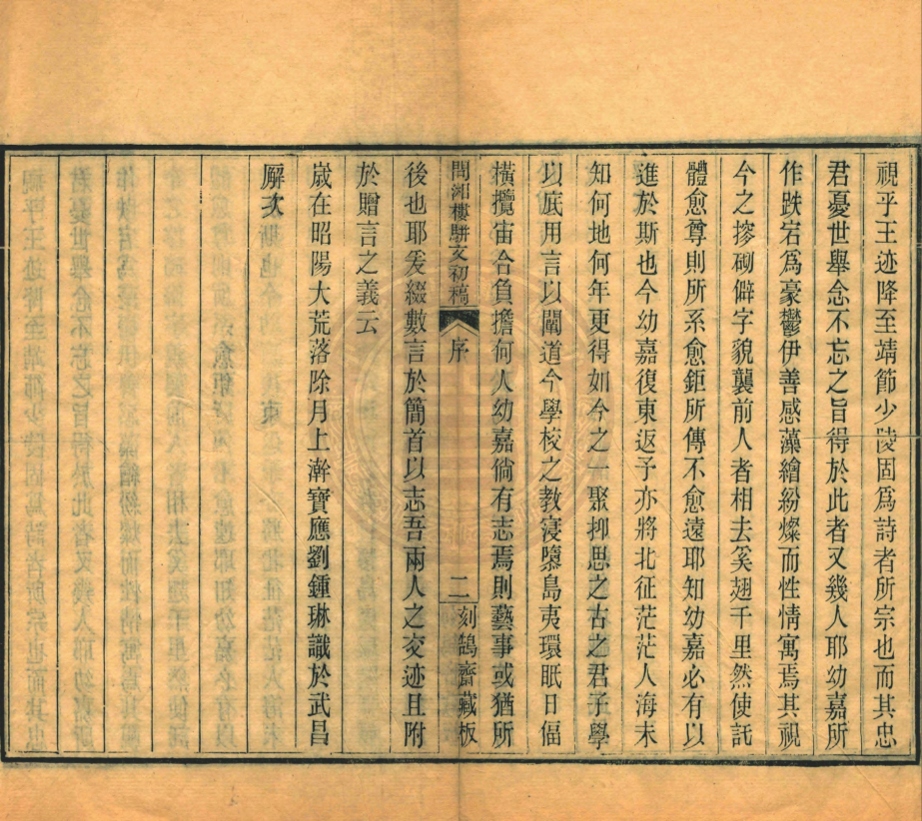 視乎王迹降至靖節少陵固爲詩者所宗也而其忠
君憂世舉念不忘之旨得於此者又幾人耶幼嘉所
作跌宕爲豪鬱伊善感藻繪紛燦而性情寓焉其視
今之撏礲僻字貌襲前人者相去奚翅千里然使託
體愈尊則所系愈鉅所傳不愈遠耶知幼嘉必有以
進於斯也今幼嘉復東返予亦將北征茫茫人海未
知何地何年更得如今之一聚抑思之古之君子學
以底用言以闡道今學校之教寖隳島夷環眂日偪
橫攬宙合負擔何人幼嘉倘有志焉則藝事或猶所
問湘樓駢文初稿 序 二 刻鵠齋藏板
後也耶爰綴數言於簡首以志吾兩人之交迹且附
於贈言之義云
歲在昭陽大荒落除月上澣寶應劉鍾琳識於武昌
廨次